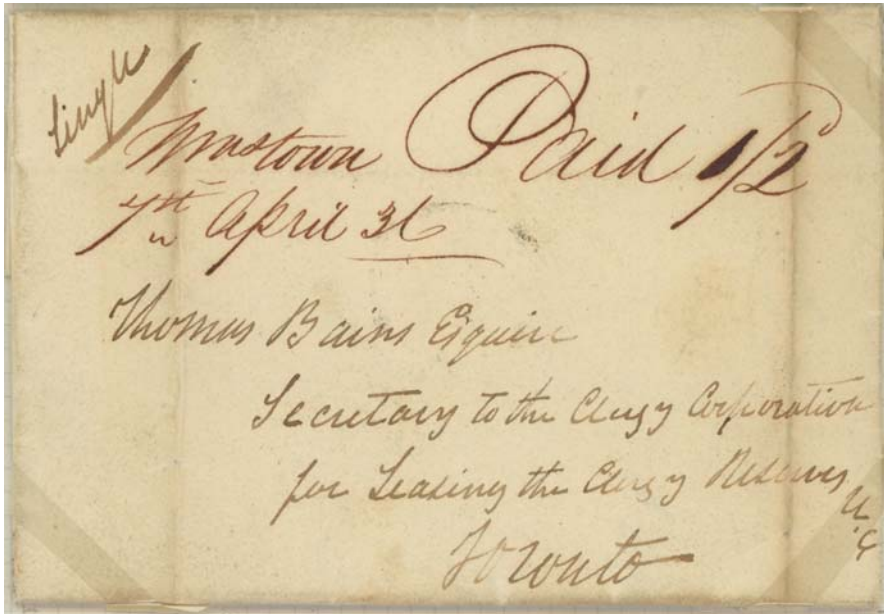 Single
Wmstown Paid 1/2
7th April 36
Thomas Bains Esquire
Secretary to the Clergy Corporation
for Leasing the Clergy Reserves
U.C
Toronto